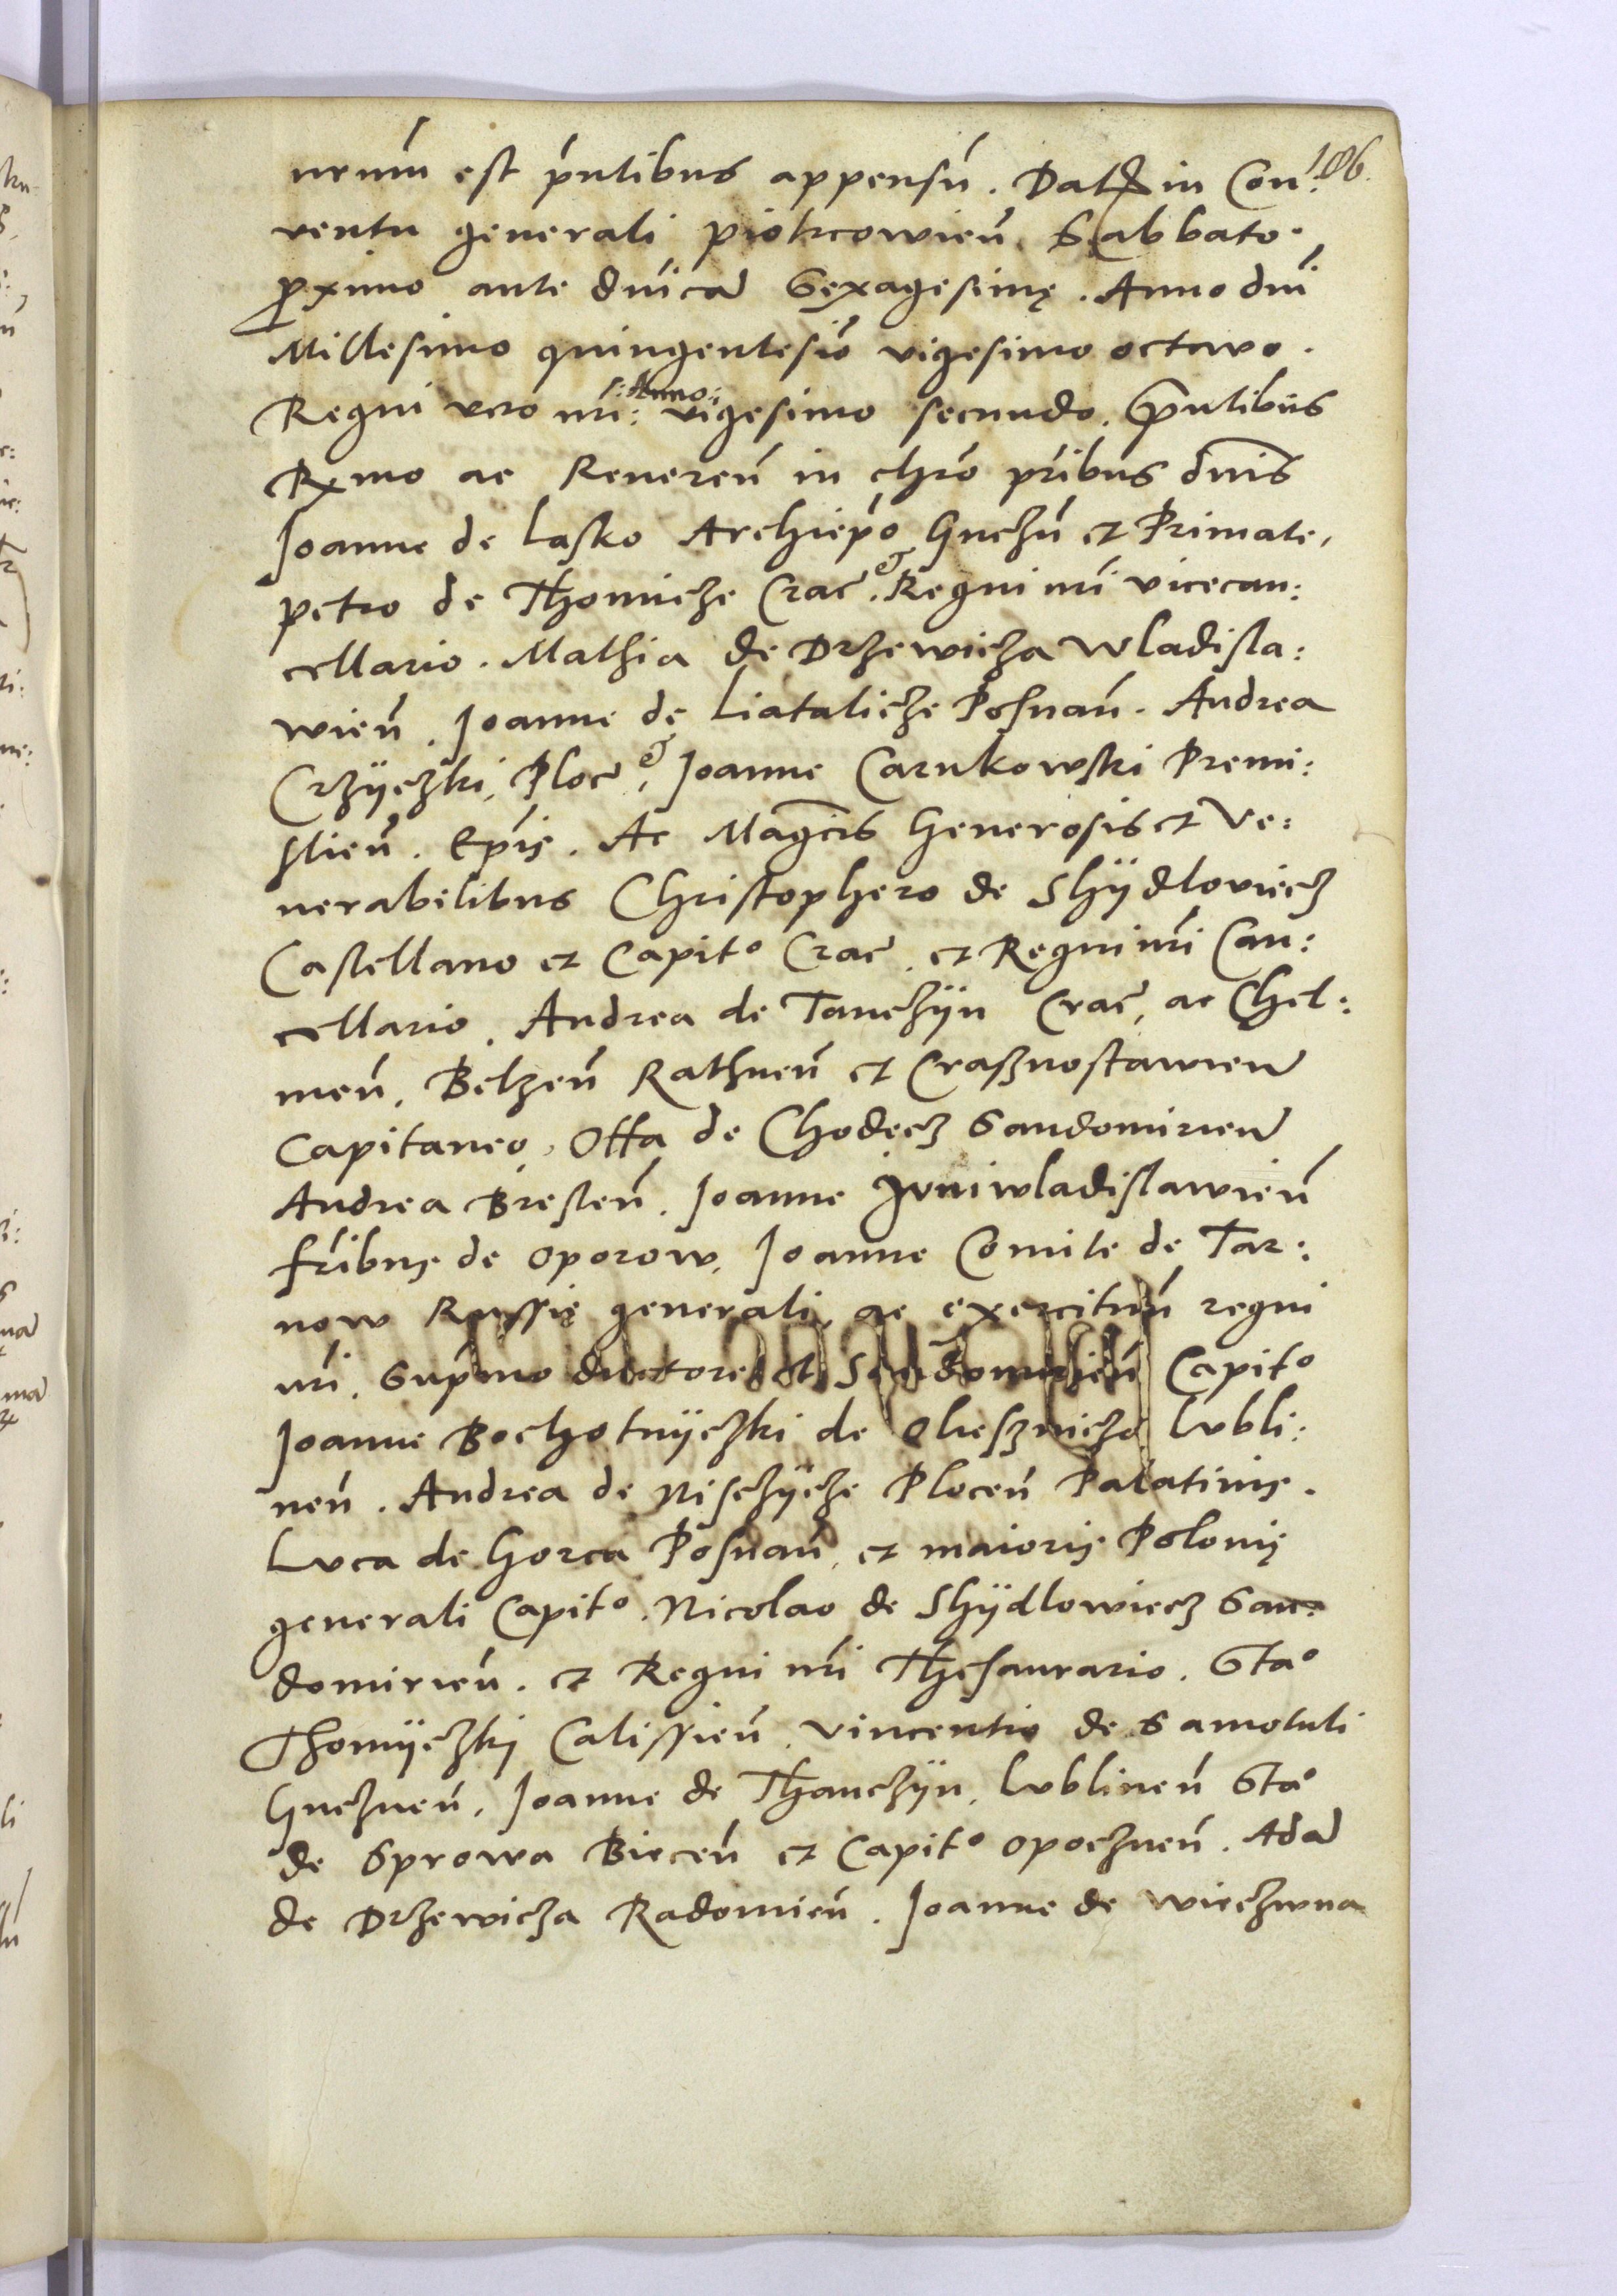 106.
nrum est pntibus appensu. Dat in Con:
ventu generali piotrcowien. Sabbato
proximo ante dnica Sexagesimę. Anno dni
Millesimo quingentesio vigesimo octavo.
Regni vero nri: Anno: vigesimo secundo. Pntibus
Rmo ac Reveren in chro pribus dnis
Joanne de Lasko Archiepo Gnezn et Primate,
petro de Thomicze Crac & Regni nri vicecan:
cellario. Mathia de Drzewicza Wladisla:
wien. Joanne de Liatalicze Posnan. Andrea
Crzyczki, Ploc & Joanne Carnkowski Premi:
slien. Epis. Ac Magcis Generosis et Ve:
nerabilibus Christophero de Shydloviecz
Castellano et Capito Crac. et Regni nri Can:
cellario. Andrea de Tanczyn Crac, ac Chel:
men, Belzen Rathnen et Crasznostawien
Capitaneo, Otta de Chodecz Sandomirien
Andrea Bresten. Joanne Juniwladislawien
fribus de Oporow, Joanne Comite de Tar:
now Russię generali, ac exercituu regni
nri. Supmo ductore et Sandomirien Capito
Joanne Bochotnyczki de Olesznicza Lubli:
nen. Andrea de Nisczycze Plocen Palatinis.
Luca de Gorca Posnan, et maioris Polonię
generali Capito. Nicolao de Shydlowiecz San:
domirien. et Regni nri Thesaurario. Stao
Thomyczky Calissien, Vincentio de Samotuli
Gneznen, Joanne de Thanczyn, Lublinen Stao
de Sprowa Biecen et Capito Opocznen. Ada
de Drzewicza Radomien. Joanne de Wieczwna